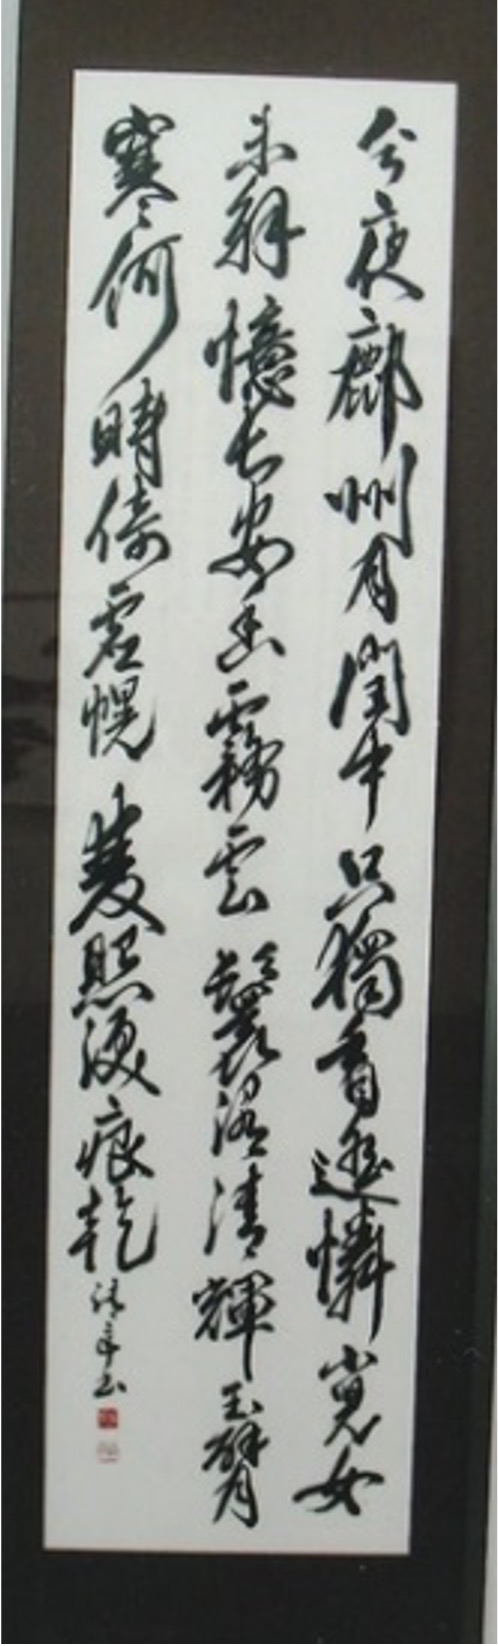 今夜鄜州月閨中只獨看遙憐小兒女
未解憶長安香霧雲鬟濕清輝玉臂
寒何時倚虛幌雙照淚痕乾